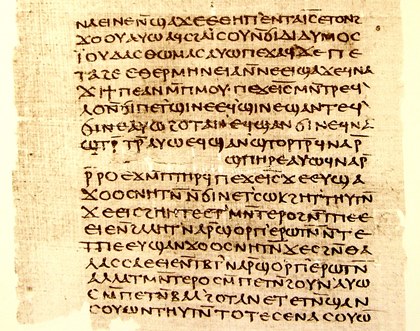 ⲛⲁⲉⲓⲛⲉⲛ̄ϣⲁϫⲉⲉⲑⲏⲡⲉⲛⲧⲁⲓ̅ⲥ̅ⲉⲧⲟⲛϩ
ϫⲟⲟⲩⲁⲩⲱⲁϥⲥϩⲁⲓ̈ⲥⲟⲩⲛ̄ϭⲓⲇⲓⲇⲩⲙⲟⲥ
ⲓ̈ⲟⲩⲇⲁⲥⲑⲱⲙⲁⲥⲁⲩⲱⲡⲉϫⲁϥϫⲉⲡⲉ
ⲧⲁϩⲉⲉⲑⲉⲣⲙⲏⲛⲉⲓⲁⲛ̄ⲛⲉⲉⲓϣⲁϫⲉϥⲛⲁ
ϫⲓϯⲡⲉⲁⲛⲙ̄ⲡⲙⲟⲩ·ⲡⲉϫⲉⲓ̅ⲥ̅ⲙⲛ̄ⲧⲣⲉϥ
ⲗⲟⲛ̄ϭⲓⲡⲉⲧϣⲓⲛⲉⲉϥϣⲓⲛⲉϣⲁⲛⲧⲉϥ
ϭⲓⲛⲉⲁⲩⲱϩⲟⲧⲁⲛⲉϥϣⲁⲛϭⲓⲛⲉϥⲛⲁ
ϣⲧⲣ̄ⲧⲣ̄ⲁⲩⲱⲉϥϣⲁⲛϣⲧⲟⲣⲧⲣ̄ϥⲛⲁⲣ̄
ϣⲡⲏⲣⲉⲁⲩⲱϥⲛⲁⲣ̄
ⲣ̄ⲣⲟⲉϫⲙ̄ⲡⲧⲏⲣϥⲡⲉϫⲉⲓ̅ⲥ̅ϫⲉⲉⲩϣⲁ
ϫⲟⲟⲥⲛⲏⲧⲛ̄ⲛ̄ϭⲓⲛⲉⲧ'ⲥⲱⲕϩⲏⲧ'ⲧⲏⲩⲧⲛ̄
ϫⲉⲉⲓⲥϩⲏⲏⲧⲉⲉⲧ'ⲙⲛ̄ⲧⲉⲣⲟϩⲛ̄ⲧⲡⲉⲉ
ⲉⲓⲉⲛ̄ϩⲁⲗⲏⲧ'ⲛⲁⲣ̄ϣⲟⲣⲡ'ⲉⲣⲱⲧⲛ̄ⲛ̄ⲧⲉ
ⲧⲡⲉⲉⲩϣⲁⲛϫⲟⲟⲥⲛⲏⲧⲛ̄ϫⲉⲥϩⲛ̄ⲑⲁ
ⲗⲁⲥⲥⲁⲉⲉⲓⲉⲛ̄ⲧⲃⲧ'ⲛⲁⲣ̄ϣⲟⲣⲡ'ⲉⲣⲱⲧⲛ̄
ⲁⲗⲗⲁⲧⲙⲛ̄ⲧⲉⲣⲟⲥⲙ̄ⲡⲉⲧⲛ̄ϩⲟⲩⲛ'ⲁⲩⲱ
ⲥⲙ̄ⲡⲉⲧⲛ̄ⲃⲁⲗ'ϩⲟⲧⲁⲛⲉⲧⲉⲧⲛ̄ϣⲁⲛ
ⲥⲟⲩⲱⲛⲧⲏⲩⲧⲛ̄ⲧⲟⲧⲉⲥⲉⲛⲁⲥⲟⲩⲱ